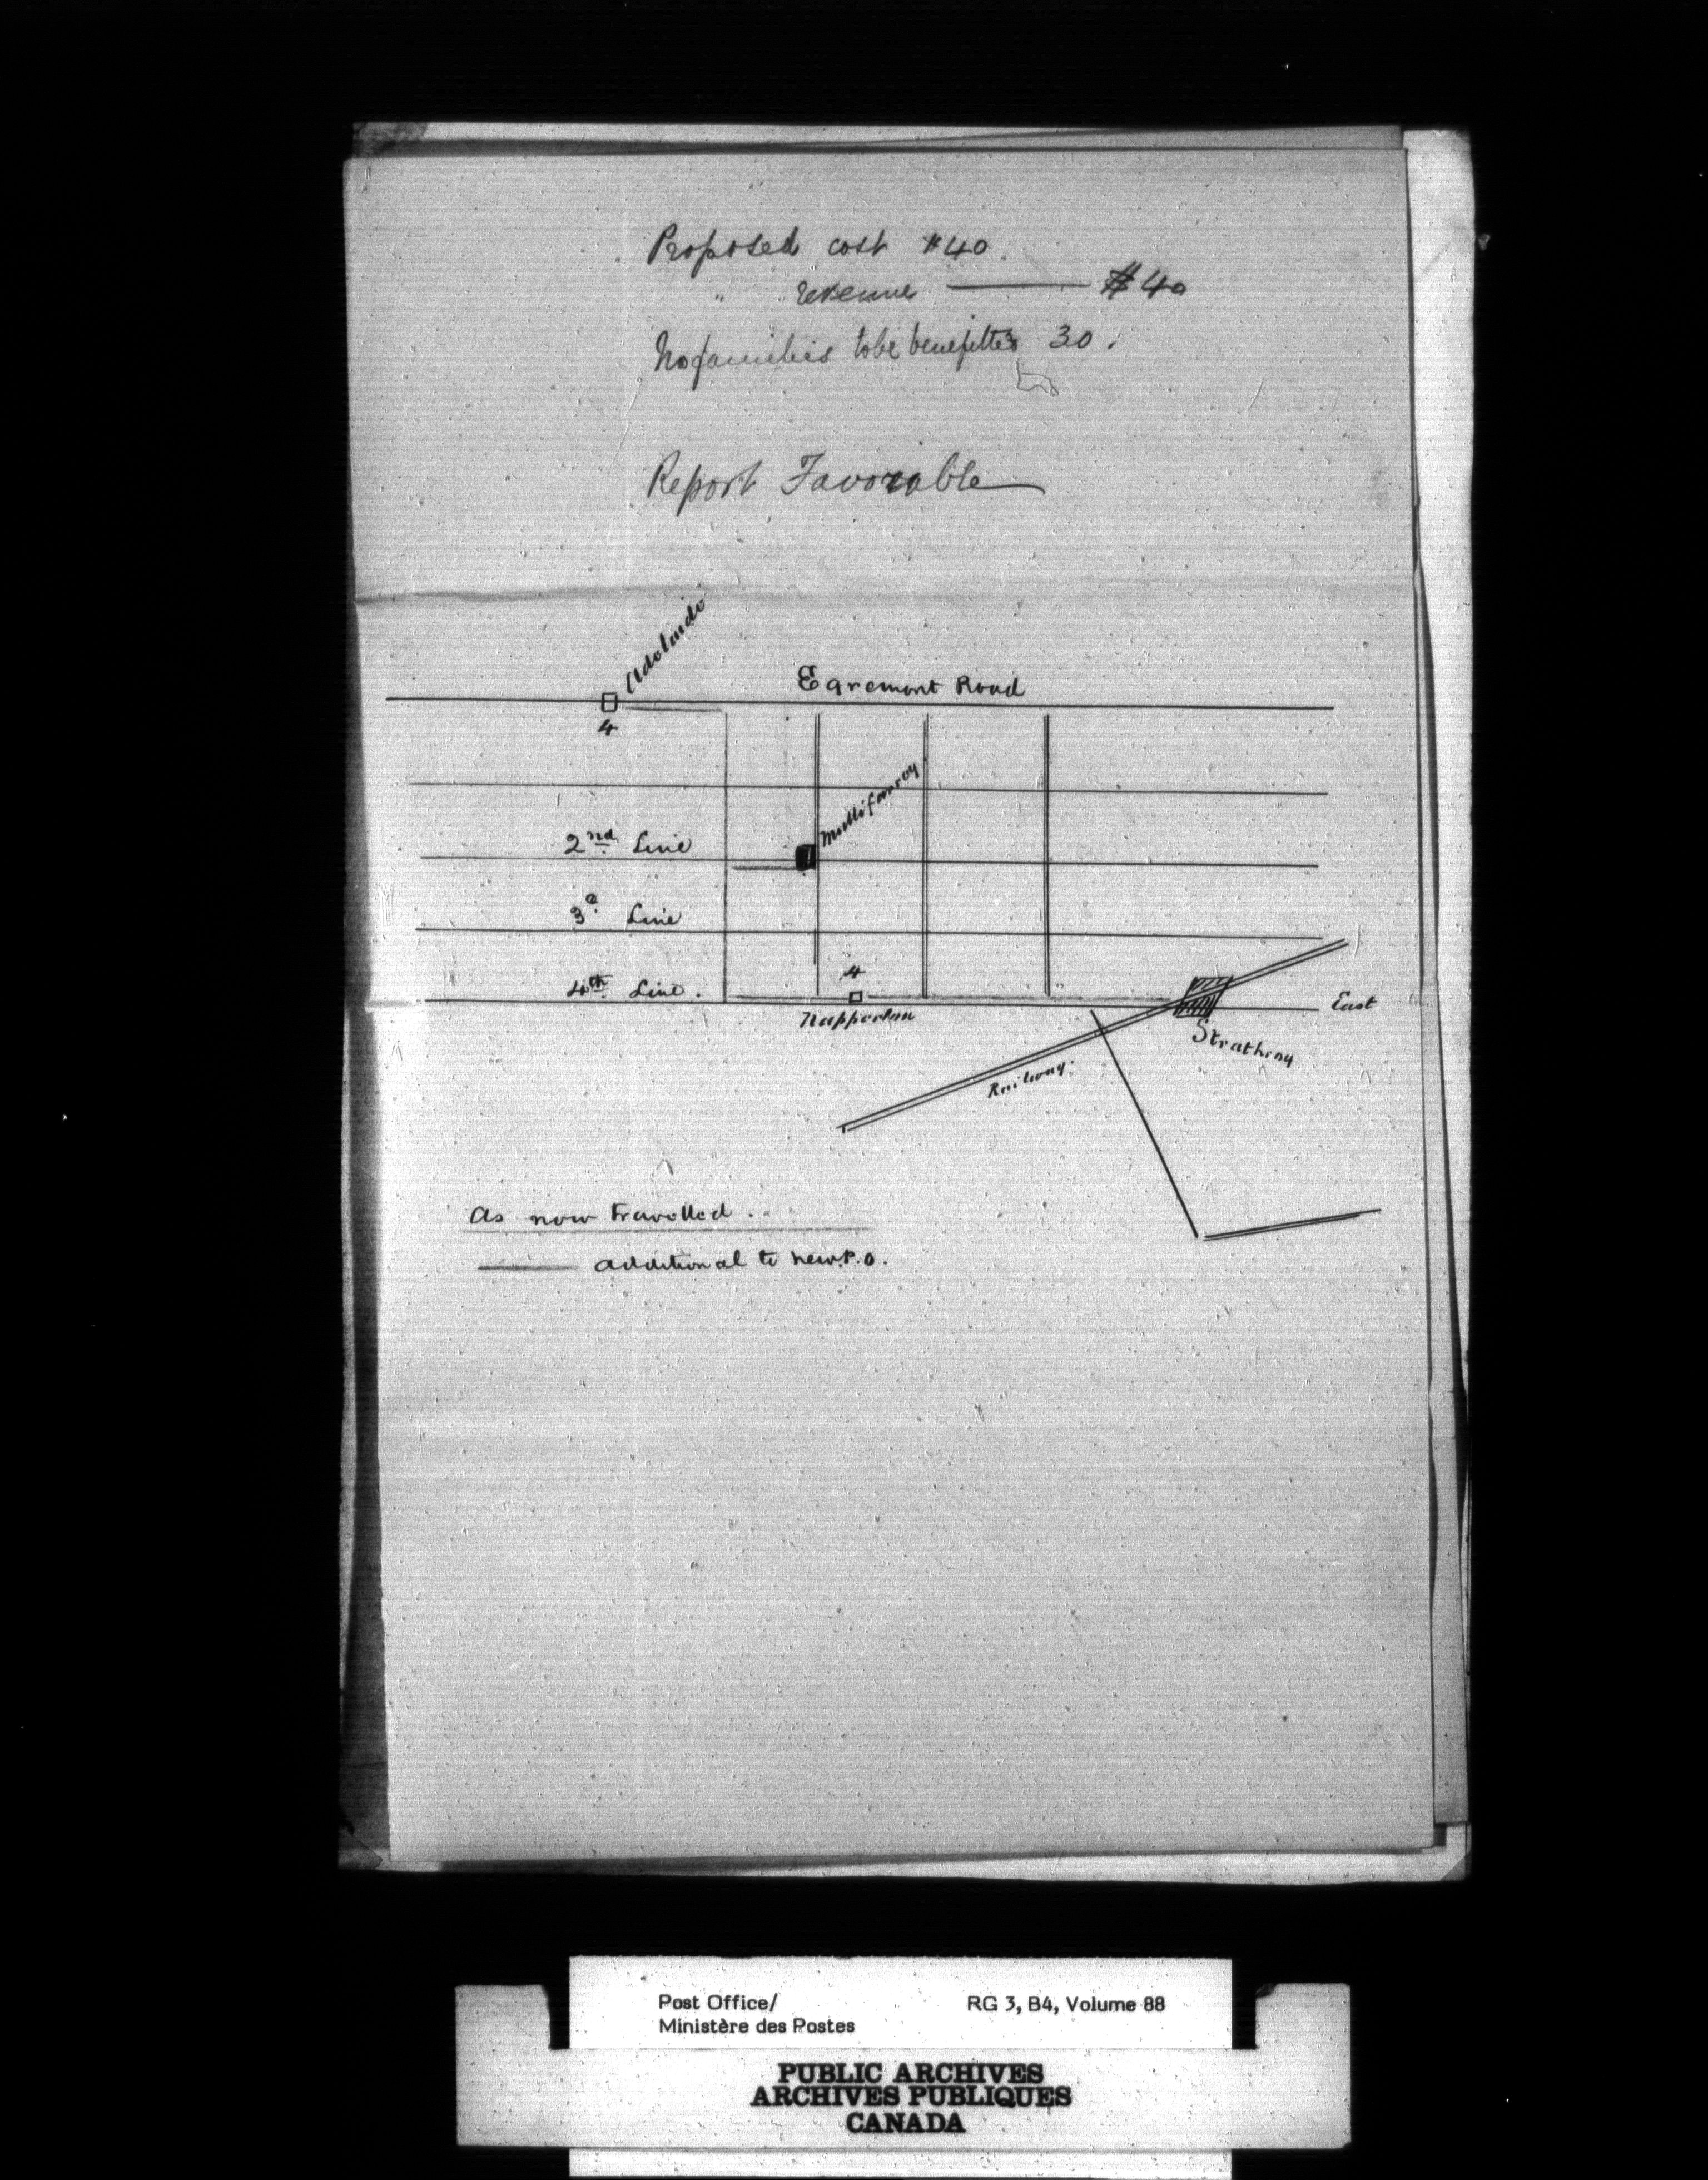 Proposed cost $40.
" revenue —— $40
No families to be benefitted 30.
Report Favorable
Adelaide
Egremont Road
4
Mullifarroy
2nd Line
3d Line
4
4th Line.
East
Napperton
Strathroy
Railway.
As now travelled.
—— additional to new P.O.
Post Office/ RG 3, B4, Volume 88
Ministère des Postes
PUBLIC ARCHIVES
ARCHIVES PUBLIQUES
CANADA